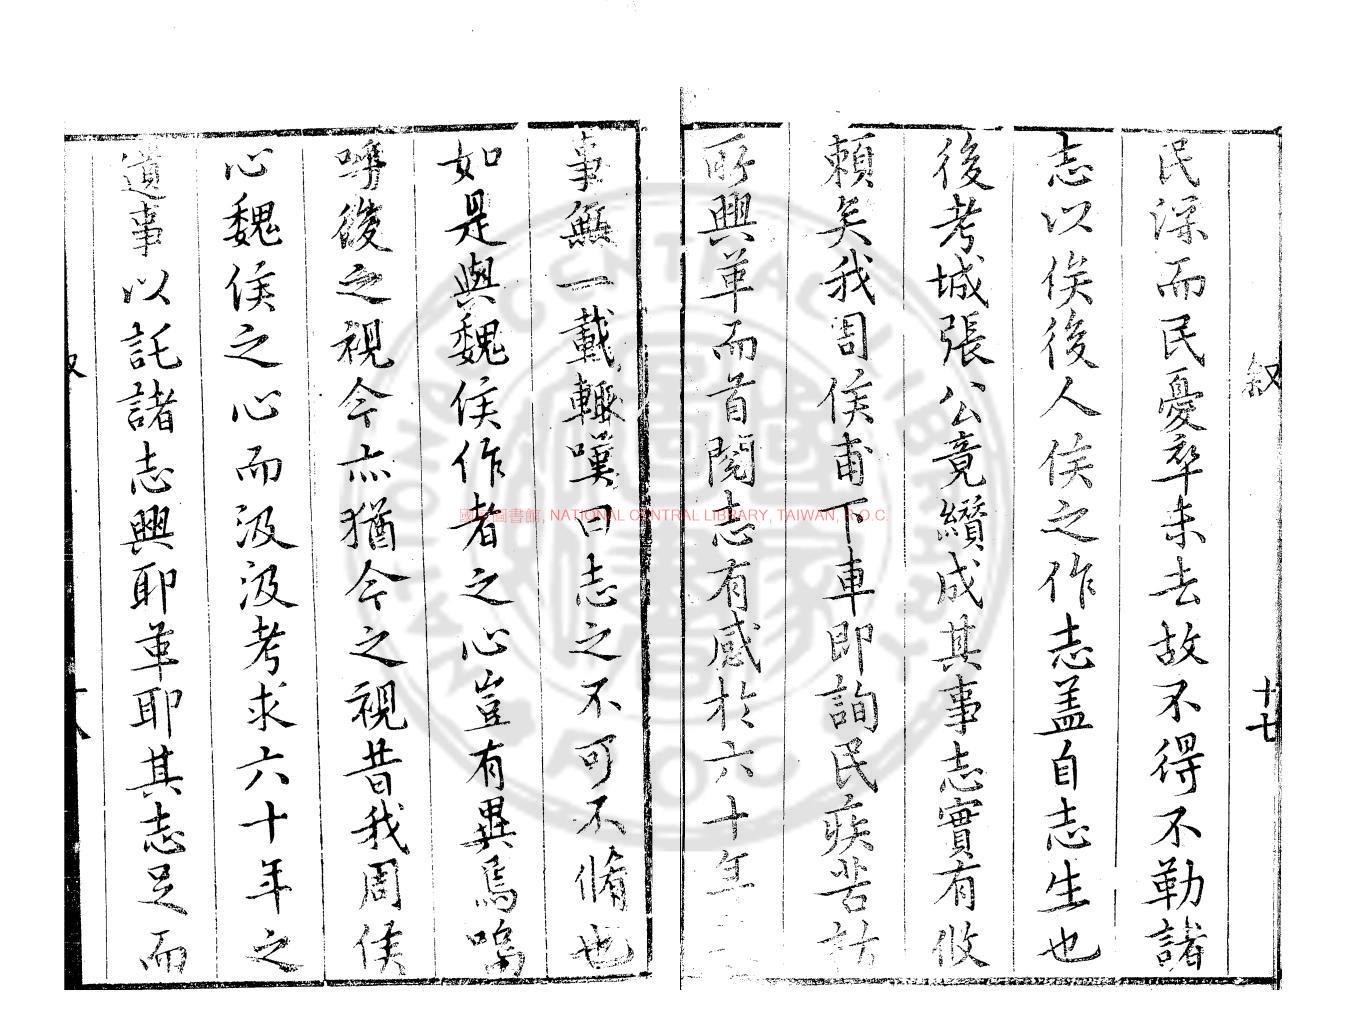 叙
十七
民深而民憂卒未去故不得不勒諸
志以俟後人侯之作志盖自志生也
後考城張公竟纘成其事志實有攸
賴矣我周侯甫下車即詢民疾苦訪
所興革而首閱志有感於六十年
事無一載輙嘆曰志之不可不脩也
如是與魏侯作者之心豈有異焉嗚
呼後之視今亦猶今之視昔我周侯
心魏侯之心而汲汲考求六十年之
遺事以託諸志興耶革耶其志足而
國家圖書館, NATIONAL CENTRAL LIBRARY, TAIWAN, R.O.C.